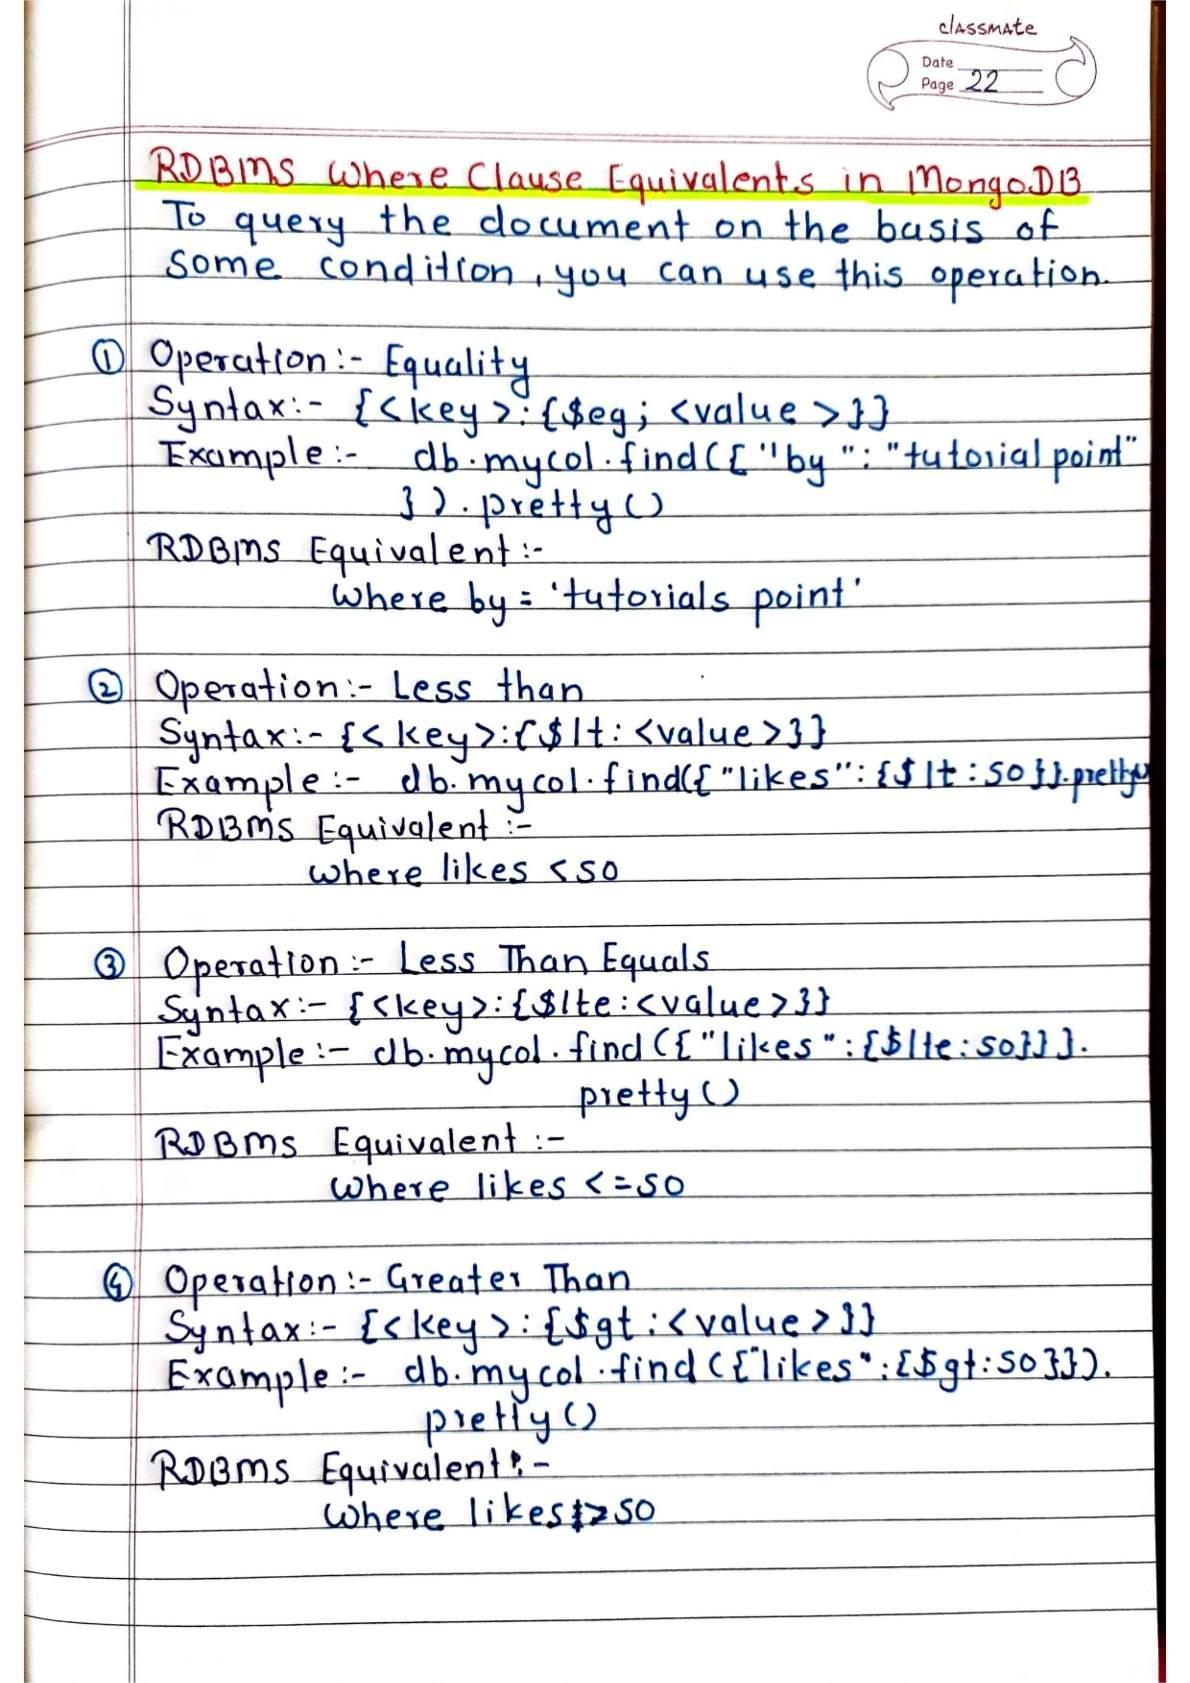 classmate
Date
Page 22
RDBMS Where Clause Equivalents in MongoDB
To query the document on the basis of
some condition, you can use this operation.
① Operation:- Equality
Syntax:- {<key>:{$eg; <value>}}
Example:- db.mycol.find({"by":"tutorial point"
}).pretty()
RDBMS Equivalent:-
Where by = 'tutorials point'
② Operation:- Less than
Syntax:- {<key>:{$lt:<value>}}
Example:- db.mycol.find({"likes":{$lt:50}}.pretty()
RDBMS Equivalent:-
Where likes <50
③ Operation:- Less Than Equals
Syntax:- {<key>:{$lte:<value>}}
Example:- db.mycol.find({"likes":{$lte:50}}}.
pretty()
RDBMS Equivalent:-
Where likes <=50
④ Operation:- Greater Than
Syntax:- {<key>:{$gt:<value>}}
Example:- db.mycol.find({"likes":{$gt:50}}).
pretty()
RDBMS Equivalent:-
Where likes >50